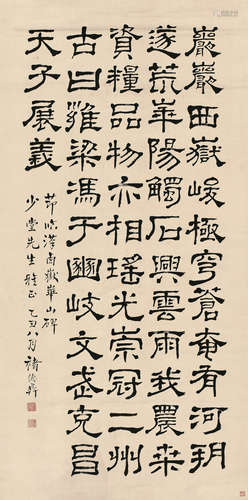 巖巖西嶽峻極穹蒼奄有河朔
遂荒崋陽觸石興雲雨我農桒
資糧品物亦相瑤光崇冠二州
古曰雍梁馮于豳岐文武克昌
天子展義
節臨漢西嶽華山碑
少堂先生雅正 乙丑八月 褚德彝